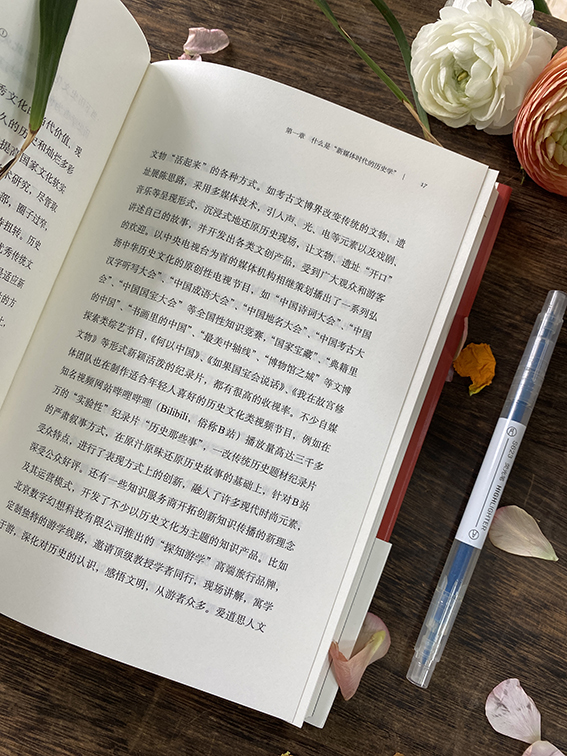 ①
秀文化的当代价值,现
久的历史和灿烂多彩
提高国家文化软实
术研究,尽管取
部,圈子过窄,
待扭转。历史
优秀传统文
是适应新
的方
第一章 什么是“新媒体时代的历史学” | 17
文物“活起来”的各种方式。如考古文博界改变传统的文物、遗
址展陈思路,采用多媒体技术,引入声、光、电等元素以及戏剧、
音乐等呈现形式,沉浸式地还原历史现场,让文物、遗址“开口”
讲述自己的故事,并开发出各类文创产品,受到广大观众和游客
的欢迎。以中央电视台为首的媒体机构相继策划播出了一系列弘
扬中华历史文化的原创性电视节目,如“中国诗词大会”、“中国
汉字听写大会”、“中国成语大会”、“中国地名大会”、“中国考古大
会”、“中国国宝大会”等全国性知识竞赛,“国家宝藏”、“典籍里
的中国”、“书画里的中国”、“最美中轴线”、“博物馆之城”等文博
探索类综艺节目,《何以中国》、《如果国宝会说话》、《我在故宫修
文物》等形式新硕活泼的纪录片,都有很高的收视率。不少自媒
体团队也在制作适合年轻人喜好的历史文化类视频节目,例如在
知名视频网站哔哩哔哩(Bilibili,俗称B站)播放量高达三千多
万的“实验性”纪录片“历史那些事”,一改传统历史题材纪录片
的严肃叙事方式,在原汁原味还原历史故事的基础上,针对B站
受众特点,进行了表现方式上的创新,融入了许多现代时尚元素,
深受公众好评。还有一些知识服务商开拓创新知识传播的新理念
及其运营模式,开发了不少以历史文化为主题的知识产品,比如
北京数字幻想科技有限公司推出的“探知游学”高端旅行品牌,
定制独特的游学线路,邀请顶级教授学者同行,现场讲解,寓学
于游,深化对历史的认识,感悟文明,从游者众多。爱道思人文
HIGHLIGHTER